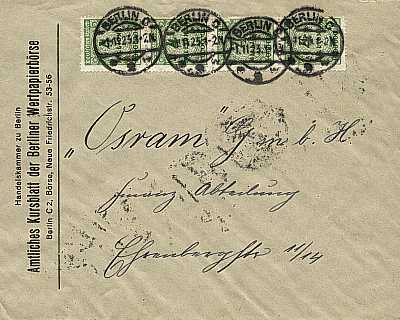 BERLIN C
1.11.23.
Handelskammer zu Berlin
Amtliches Kursblatt der Berliner Wertpapierbörse
Berlin C 2, Börse, Neue Friedrichstr. 53-56
„Osram" G m b. H
Finanz Abteilung
Ehrenbergstr 11/14